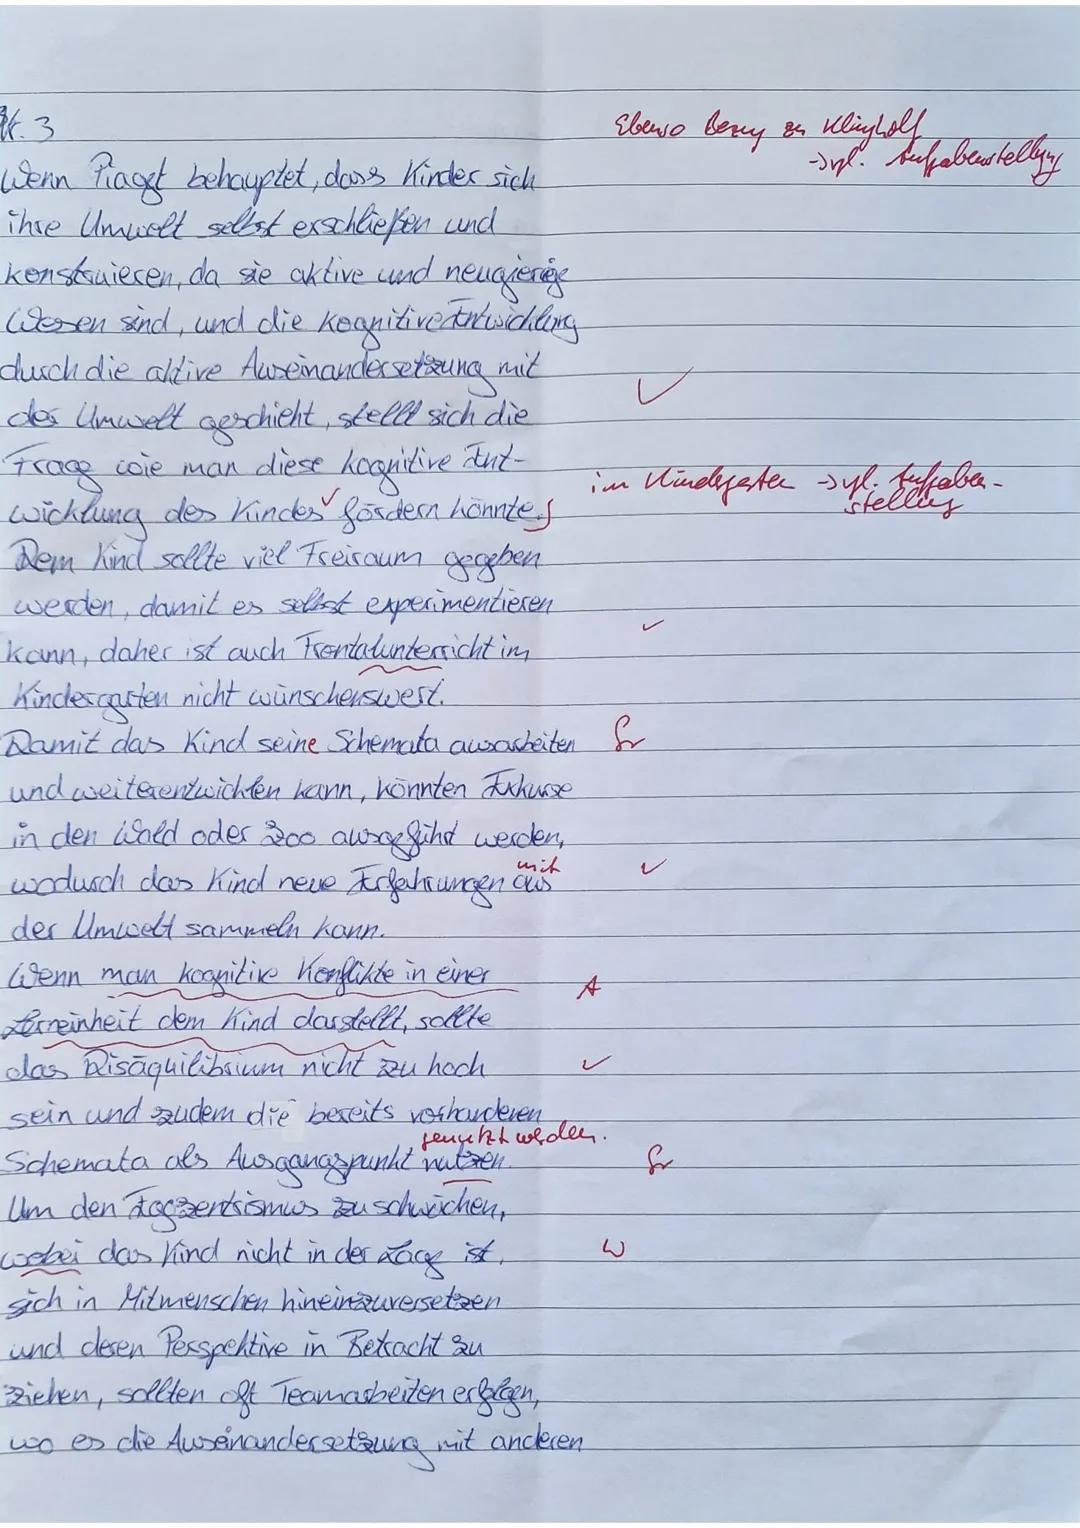 Nr. 3
Ebenso Bezug zu Klinghoff
->vgl. Aufgabenstellung
Wenn Piaget behauptet, dass Kinder sich
ihre Umwelt selbst erschließen und
konstruieren, da sie aktive und neugierige
Wesen sind, und die kognitive Entwicklung
durch die aktive Auseinandersetzung mit
der Umwelt geschieht, stellt sich die
Frage wie man diese kognitive Ent-
im Kindergarten ->vgl. Aufgaben-
stellung
wicklung des Kindes fördern könnte.
Dem Kind sollte viel Freiraum gegeben
werden, damit es selbst experimentieren
kann, daher ist auch Frontalunterricht im
Kindergarten nicht wünschenswert.
Damit das Kind seine Schemata ausarbeiten Gr
und weiterentwickeln kann, könnten Exkurse
in den Wald oder Zoo ausgeführt werden,
mit
wodurch das Kind neue Erfahrungen aus
der Umwelt sammeln kann.
Wenn man kognitive Konflikte in einer A
Lerneinheit dem Kind darstellt, sollte
das Disäquilibrium nicht zu hoch
sein und zudem die bereits vorhandenen
genutzt werden.
Schemata als Ausgangspunkt nutzen. Gr
Um den Egozentrismus zu schwächen,
wobei das Kind nicht in der Lage ist, W
sich in Mitmenschen hineinzuversetzen
und deren Perspektive in Betracht zu
ziehen, sollten oft Teamarbeiten erfolgen,
wo es die Auseinandersetzung mit anderen